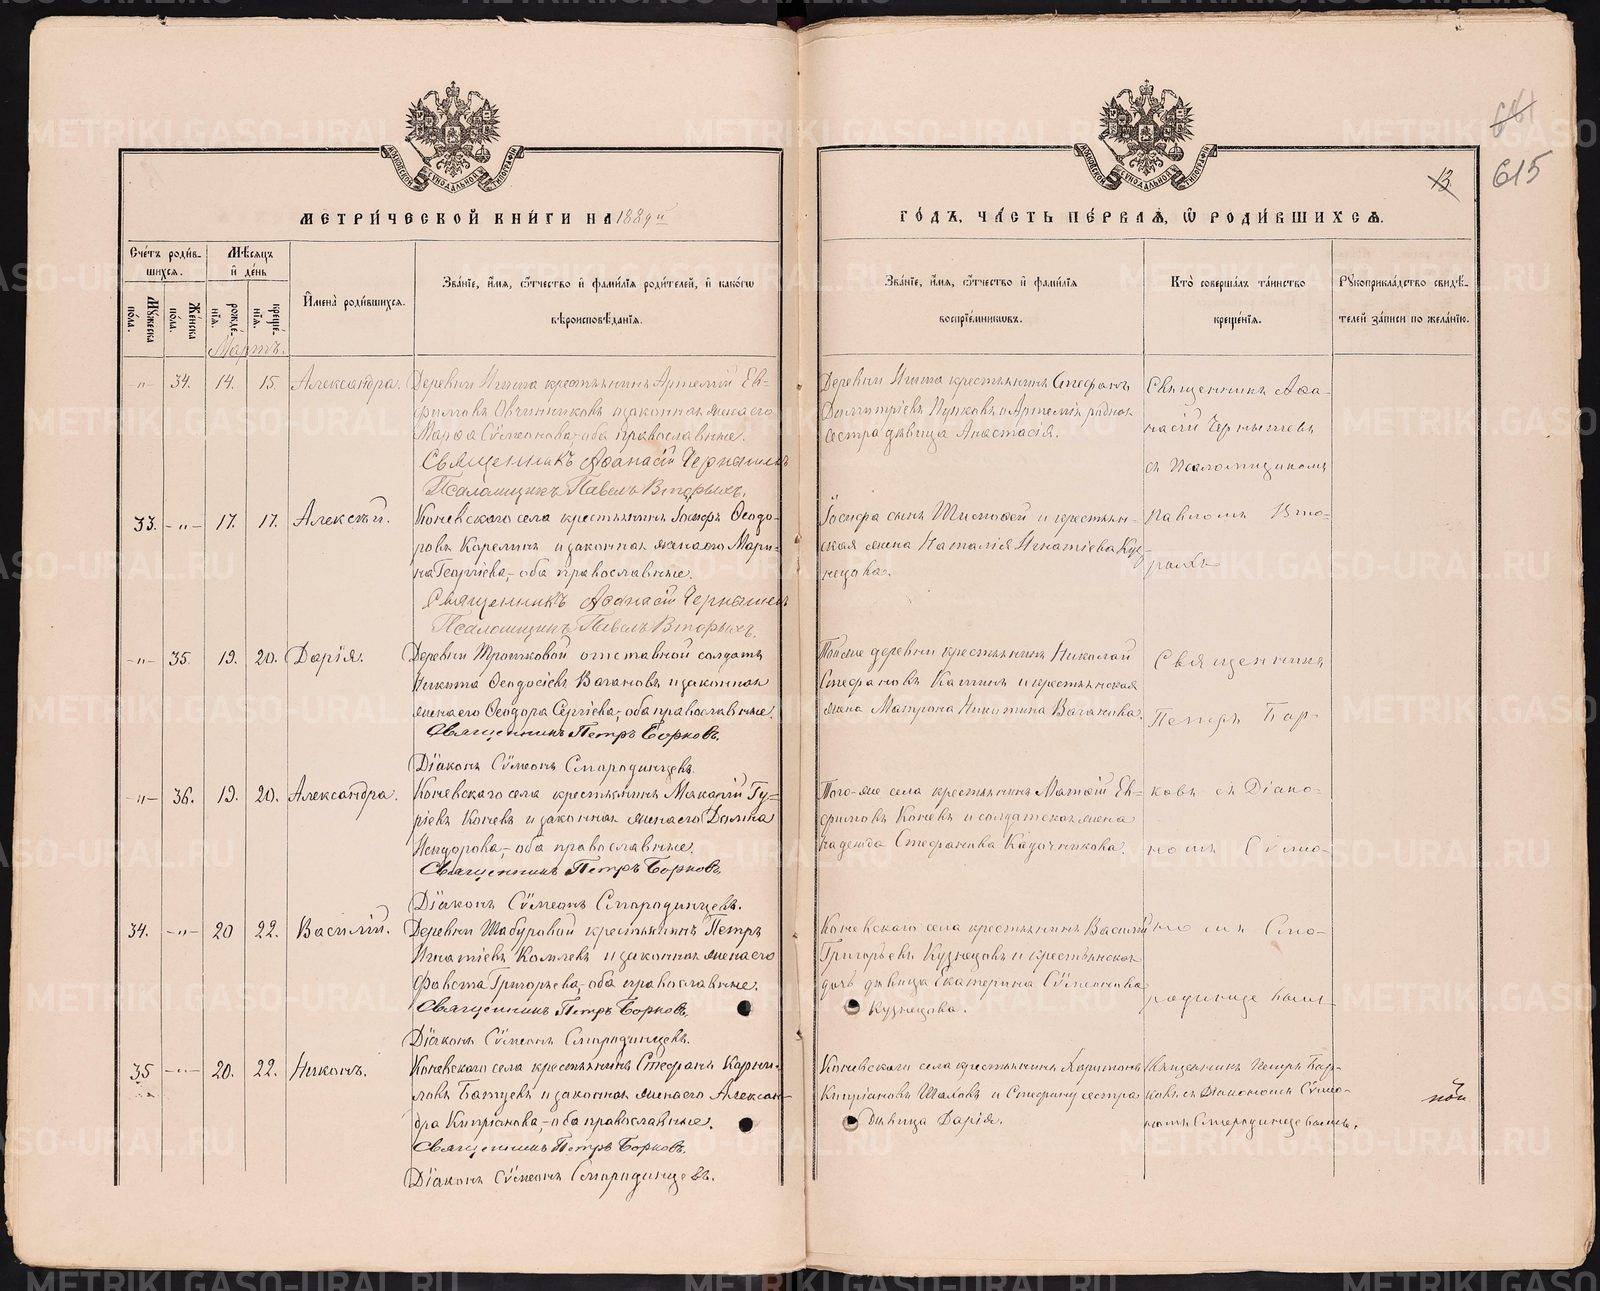 МЕТРИ́ЧЕСКОЙ КНИ́ГИ НА 1889й
Сче́тъ роди́в-
шихся.
Мѣ́сяцъ
и҆ де́нь
Мꙋжеска
по́ла.
Же́нска
по́ла.
рожде́-
нїѧ.
креще́-
нїѧ.
И҆мена̀ роди́вшихся.
Зва́нїе, и҆́мѧ, ѻ҆́тчество и҆ фами́лїѧ роди́телей, и҆ како́гѡ
вѣроисповѣ́данїѧ.
Мартъ.
-"- 34. 14. 15. Александра. Деревни Ниша крестьянинъ Артемій Ев-
фимовъ Овчинниковъ и законная жена его
Марѳа Сѵмеонова, оба православные.
Священникъ Аѳанасій Чернышевъ
Псаломщикъ Павелъ Вторыхъ.
33. -"- 17. 17. Алексѣй. Коневскаго села крестьянинъ Іосифъ Ѳеодо-
ровъ Карелинъ и законная жена его Мари-
на Георгіева, оба православные.
Священникъ Аѳанасій Чернышевъ
Псаломщикъ Павелъ Вторыхъ.
-"- 35. 19. 20. Дарія. Деревни отставной солдатъ
Никита Ѳеодосіевъ Вагановъ и законная
жена его Ѳеодора Сергіева, оба православные.
Священникъ Петръ Борковъ.
Діаконъ Сѵмеонъ Смородинцевъ.
-"- 36. 19. 20. Александра. Коневскаго села крестьянинъ Макарій Гу-
ріевъ Коневъ и законная жена его Домна
Исидорова, оба православные.
Священникъ Петръ Борковъ.
Діаконъ Сѵмеонъ Смородинцевъ.
34. -"- 20 22. Василій. Деревни Шабуровой крестьянинъ Петръ
Игнатіевъ Комлевъ и законная жена его
Фавста Григорьева, оба православные.
Священникъ Петръ Борковъ.
Діаконъ Сѵмеонъ Смородинцевъ.
35 -"- 20. 22. Никонъ. Коневскаго села крестьянинъ Стефанъ Корни-
ловъ и законная жена его Алексан-
дра Кипріанова, оба православные.
Священникъ Петръ Борковъ.
Діаконъ Сѵмеонъ Смородинцевъ.
661
13
615
ГО́ДЪ, ЧА́СТЬ ПЕ́РВАѦ, Ѡ҆ РОДИ́ВШИХСѦ.
Зва́нїе, и҆́мѧ, ѻ҆́тчество и҆ фами́лїѧ
воспрїе́мникѡвъ.
Кто̀ соверша́лъ та́инство
креще́нїѧ.
Рꙋкоприкла́дство свидѣ́-
телей за́писи по жела́нїю.
Деревни Ниша крестьянинъ Стефанъ
Димитріевъ Пупковъ и Артемія родная
сестра дѣвица Анастасія.
Священникъ Аѳа-
насій Чернышевъ
съ Псаломщикомъ
Іосифа сынъ Тимоѳей и крестьян-
ская жена Наталія Игнатіева Куз-
нецова.
Павломъ Вто-
рыхъ
Той же деревни крестьянинъ Николай
Стефановъ и крестьянская
жена Матрона Никитина Ваганова.
Священникъ
Петръ Бор-
Того-же села крестьянинъ Матѳій Ев-
фимовъ Коневъ и солдатская жена
Надежда Стефанова Казачникова.
ковъ съ Діако-
номъ Сѵмео-
Коневскаго села крестьянинъ Василій
Григорьевъ Кузнецовъ и крестьянская
дочь дѣвица Екатерина Сѵмеонова
Кузнецова.
номъ Смо-
родинцевымъ
Коневскаго села крестьянинъ Харитонъ
Кипріановъ Шаховъ и Стефану сестра
Дѣвица Дарія.
Священникъ Петръ Бор-
ковъ съ Діакономъ Сѵмео-
номъ Смородинцевымъ.
METRIKI.GASO-URAL.RU